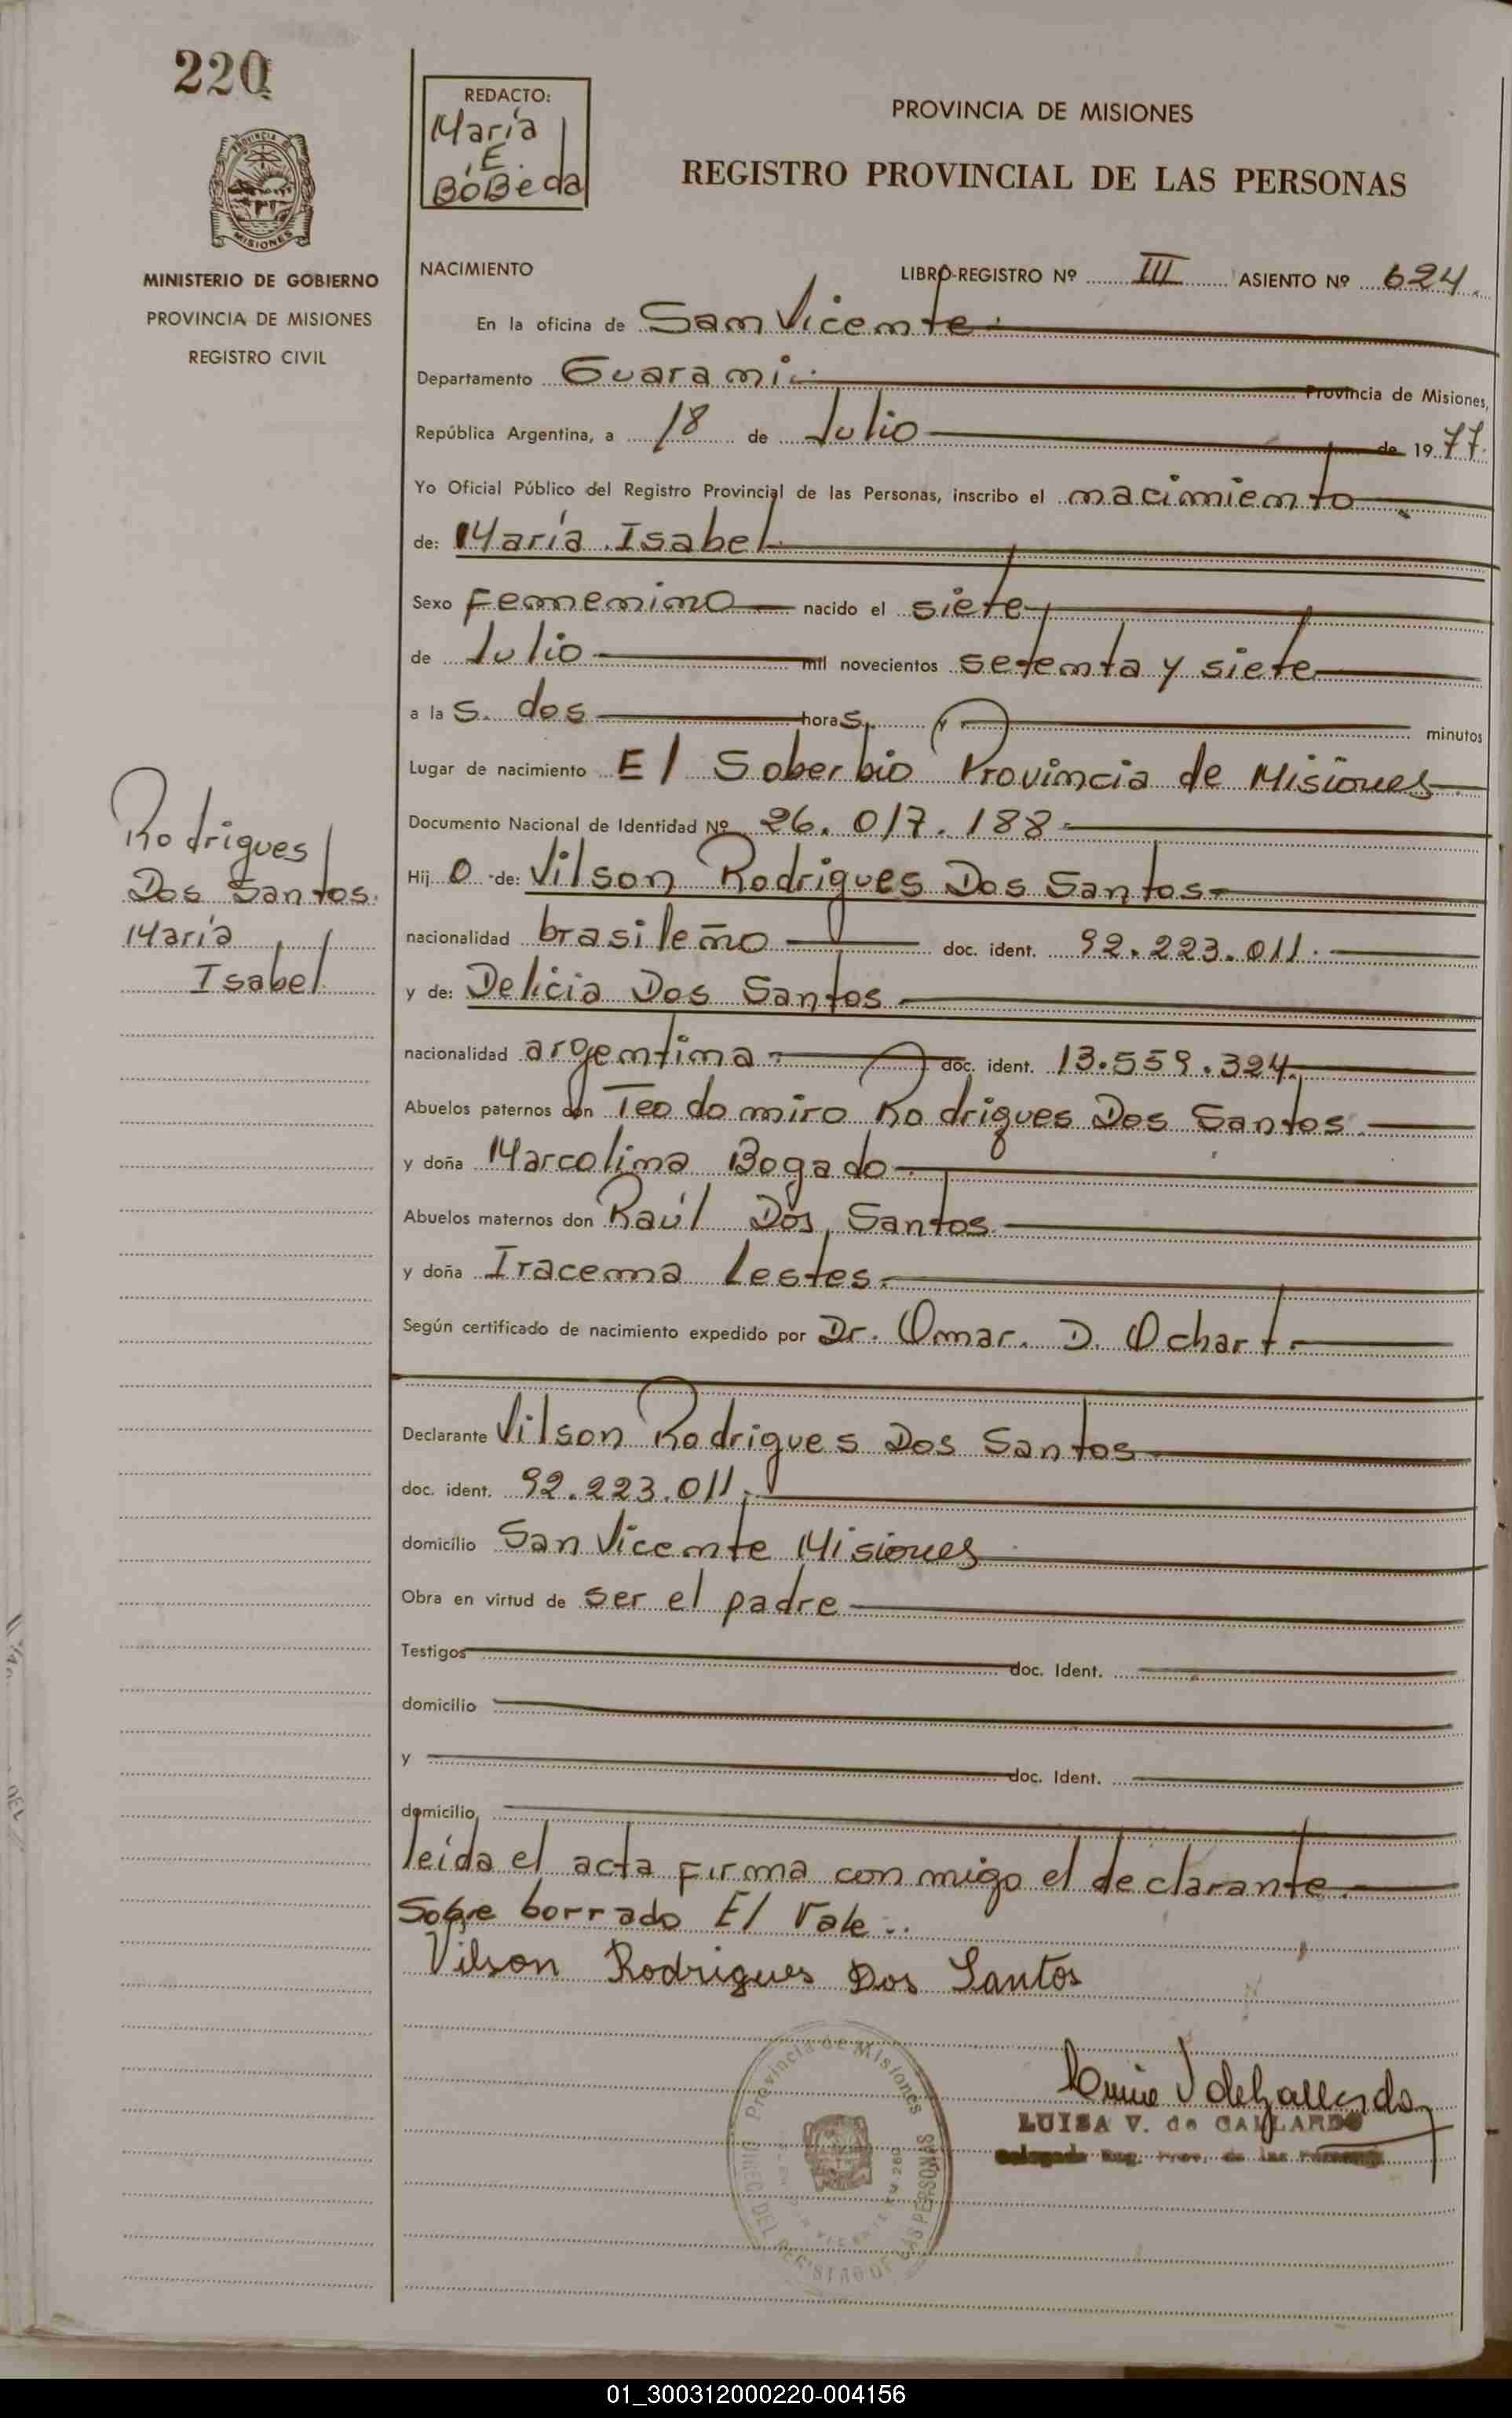 220
REDACTO:
María
E.
BóBeda
PROVINCIA DE MISIONES
REGISTRO PROVINCIAL DE LAS PERSONAS
MINISTERIO DE GOBIERNO
PROVINCIA DE MISIONES
REGISTRO CIVIL
NACIMIENTO
LIBRO-REGISTRO Nº III ASIENTO Nº 624.
En la oficina de San Vicente
Departamento Guarani Provincia de Misiones,
República Argentina, a 18 de Julio de 1977.
Yo Oficial Público del Registro Provincial de las Personas, inscribo el nacimiento
de: María Isabel
Sexo Femenino nacido el siete
de Julio mil novecientos setenta y siete
a la s. dos horas, y minutos
Lugar de nacimiento El Soberbio Provincia de Misiones
Documento Nacional de Identidad Nº 26.017.188
Hij o de: Vilson Rodrigues Dos Santos
nacionalidad brasileño doc. ident. 92.223.011.
y de: Delicia Dos Santos
nacionalidad argentina doc. ident. 13.559.324.
Abuelos paternos don Teodomiro Rodrigues Dos Santos
y doña Marcolina Bogado
Abuelos maternos don Raúl Dos Santos
y doña Iracema Lestes.
Según certificado de nacimiento expedido por Dr. Omar. D. Ochart.
Declarante Vilson Rodrigues Dos Santos
doc. ident. 92.223.011.
domicilio San Vicente Misiones
Obra en virtud de ser el padre
Testigos doc. Ident.
domicilio
y doc. Ident.
domicilio
leída el acta firma con migo el declarante.
Sobre borrado El Vale..
Vilson Rodrigues Dos Santos
Rodrigues
Dos Santos.
María
Isabel
Provincia de Misiones
DIREC. DEL REGISTRO DE LAS PERSONAS
LUISA V. de GALLARDO
Delegada Reg. Prov. de las Personas
01_300312000220-004156